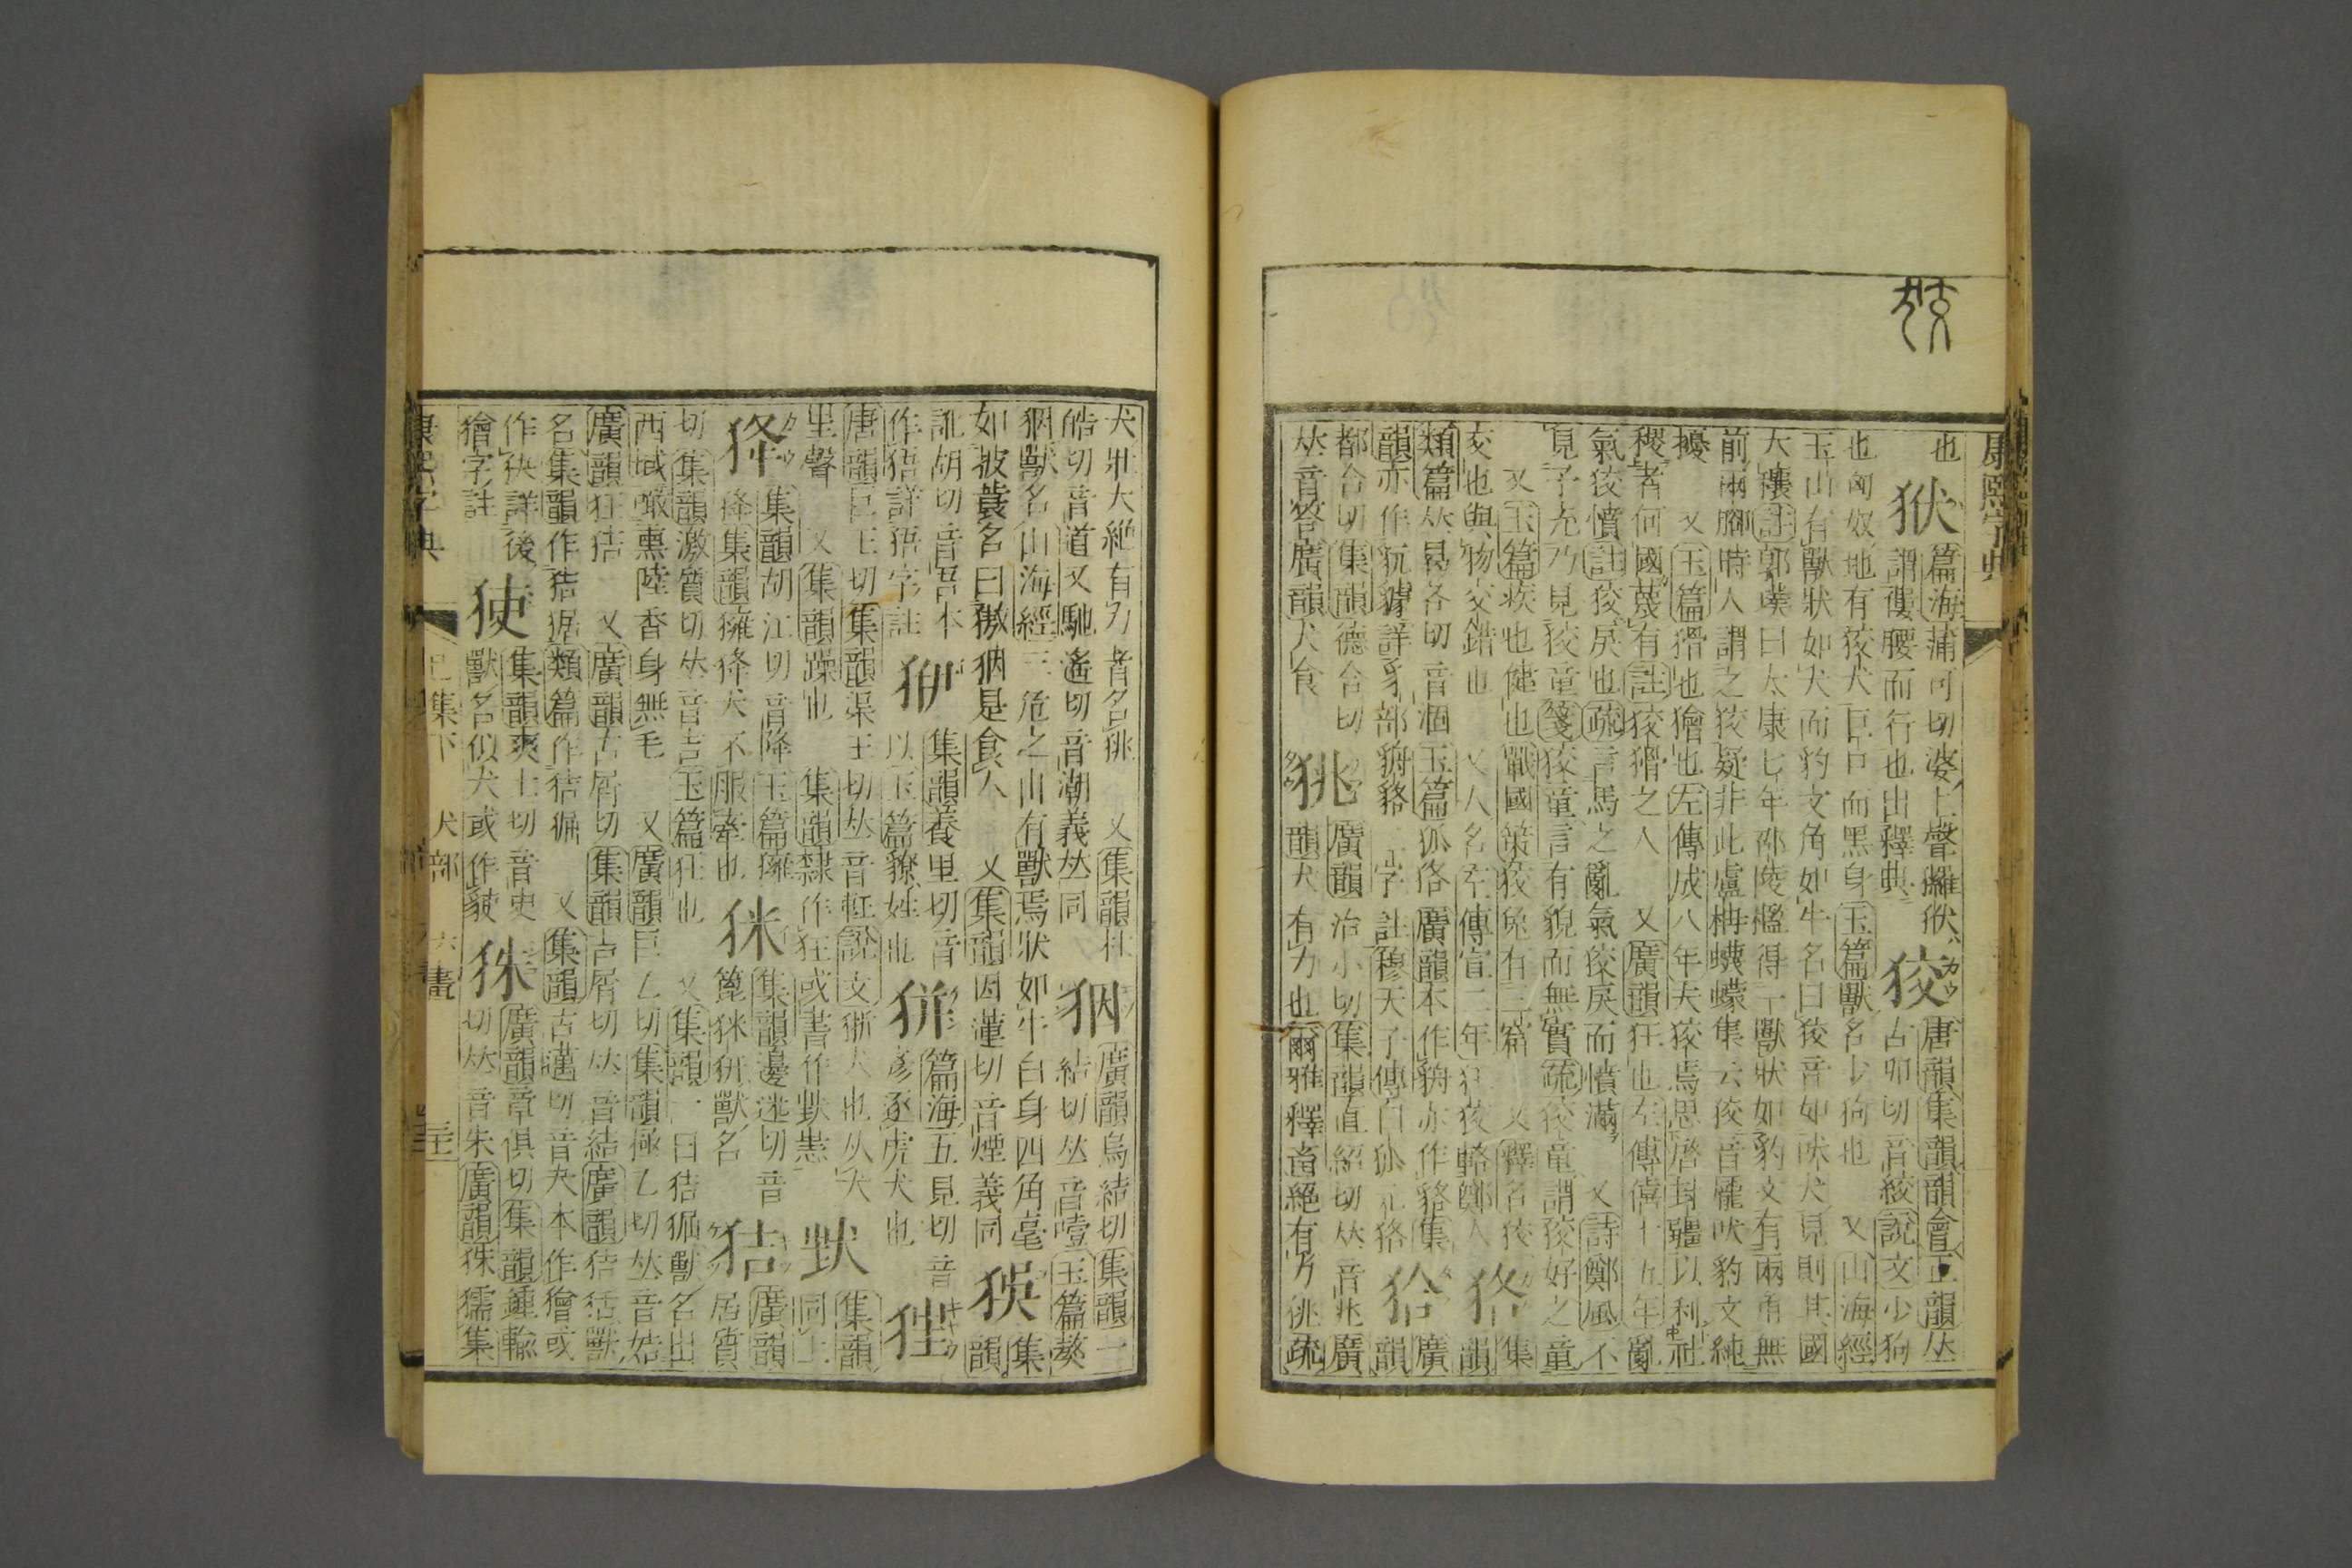 康熙字典
也 篇海蒲可切婆上聲 唐韻集韻韻會正韻𠀤
謂腰而行也出釋典 狡 古卯切音絞說文少狗
也匈奴地有狡犬巨口而黑身玉篇獸名少狗也 又山海經
玉山有獸狀如犬而豹文角如牛名曰狡音如吠犬見則其國
大穰註郭璞曰太康七年邵陵檻得一獸狀如豹文有兩角無
前兩腳時人謂之狡疑非此盧柟蠛蠓集云狡音懽吠豹文純
擾 又玉篇猾也獪也左傳成八年夫狡焉思啓封疆以利社
稷者何國蔑有註狡猾之人 又廣韻狂也左傳僖十五年亂
氣狡憤註狡戾也疏言馬之亂氣狡戾而憤滿 又詩鄭風不
見子充乃見狡童箋狡童言有貌而無實疏狡童謂狡好之童
又玉篇疾也健也戰國策狡兔有三窟 又釋名狡 集
交也與物交錯也 又人名左傳宣二年狂狡輅鄭人 狢 韻
類篇𠀤曷各切音涸玉篇狐狢廣韻本作貈亦作貉集 廣
韻亦作詳豸部貈貉二字註穆天子傳白狐元狢 韻
都合切集韻德合切 廣韻治小切集韻直紹切𠀤音兆廣
𠀤音答廣韻犬食 狣 韻犬有力也爾雅釋畜絕有力狣疏
犬壯大絕有力者名狣 又集韻杜 廣韻烏結切集韻一
皓切音道又馳遙切音潮義𠀤同 結切𠀤音噎玉篇獒
獸名山海經三危之山有獸焉狀如牛白身四角毫 集
如披蓑名曰獓是食人 又集韻因蓮切音煙義同 㹳 韻
訛胡切音吾本 集韻養里切音 篇海五見切音
作詳字註 以玉篇獠姓也 彥逐虎犬也 狂
唐韻巨王切集韻渠王切𠀤音軖說文狾犬也从犬 集韻
㞷聲 又集韻躁也 集韻隸作狂或書作 同上
集韻胡江切音降玉篇 集韻邊迷切音 廣韻
降集韻犬不服牽也 篦獸名 狤 居質
切集韻激質切𠀤音吉玉篇狂也 又集韻一曰狤獸名出
西域噉熏陸香身無毛 又廣韻巨乙切集韻極乙切𠀤音姞
廣韻狂狤 又廣韻古屑切集韻吉屑切𠀤音結廣韻狤獸
名集韻作狤類篇作狤猵 又集韻古邁切音夬本作獪或
作詳後 集韻爽士切音史 廣韻章俱切集韻鍾輸
獪字註 獸名似犬或作 切𠀤音朱廣韻獳集
康熙字典 巳集下 犬部 六畫